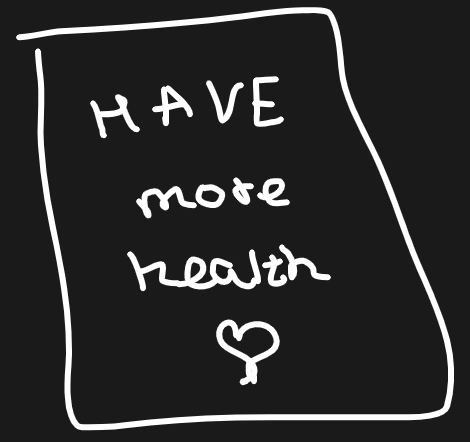 HAVE
more
health